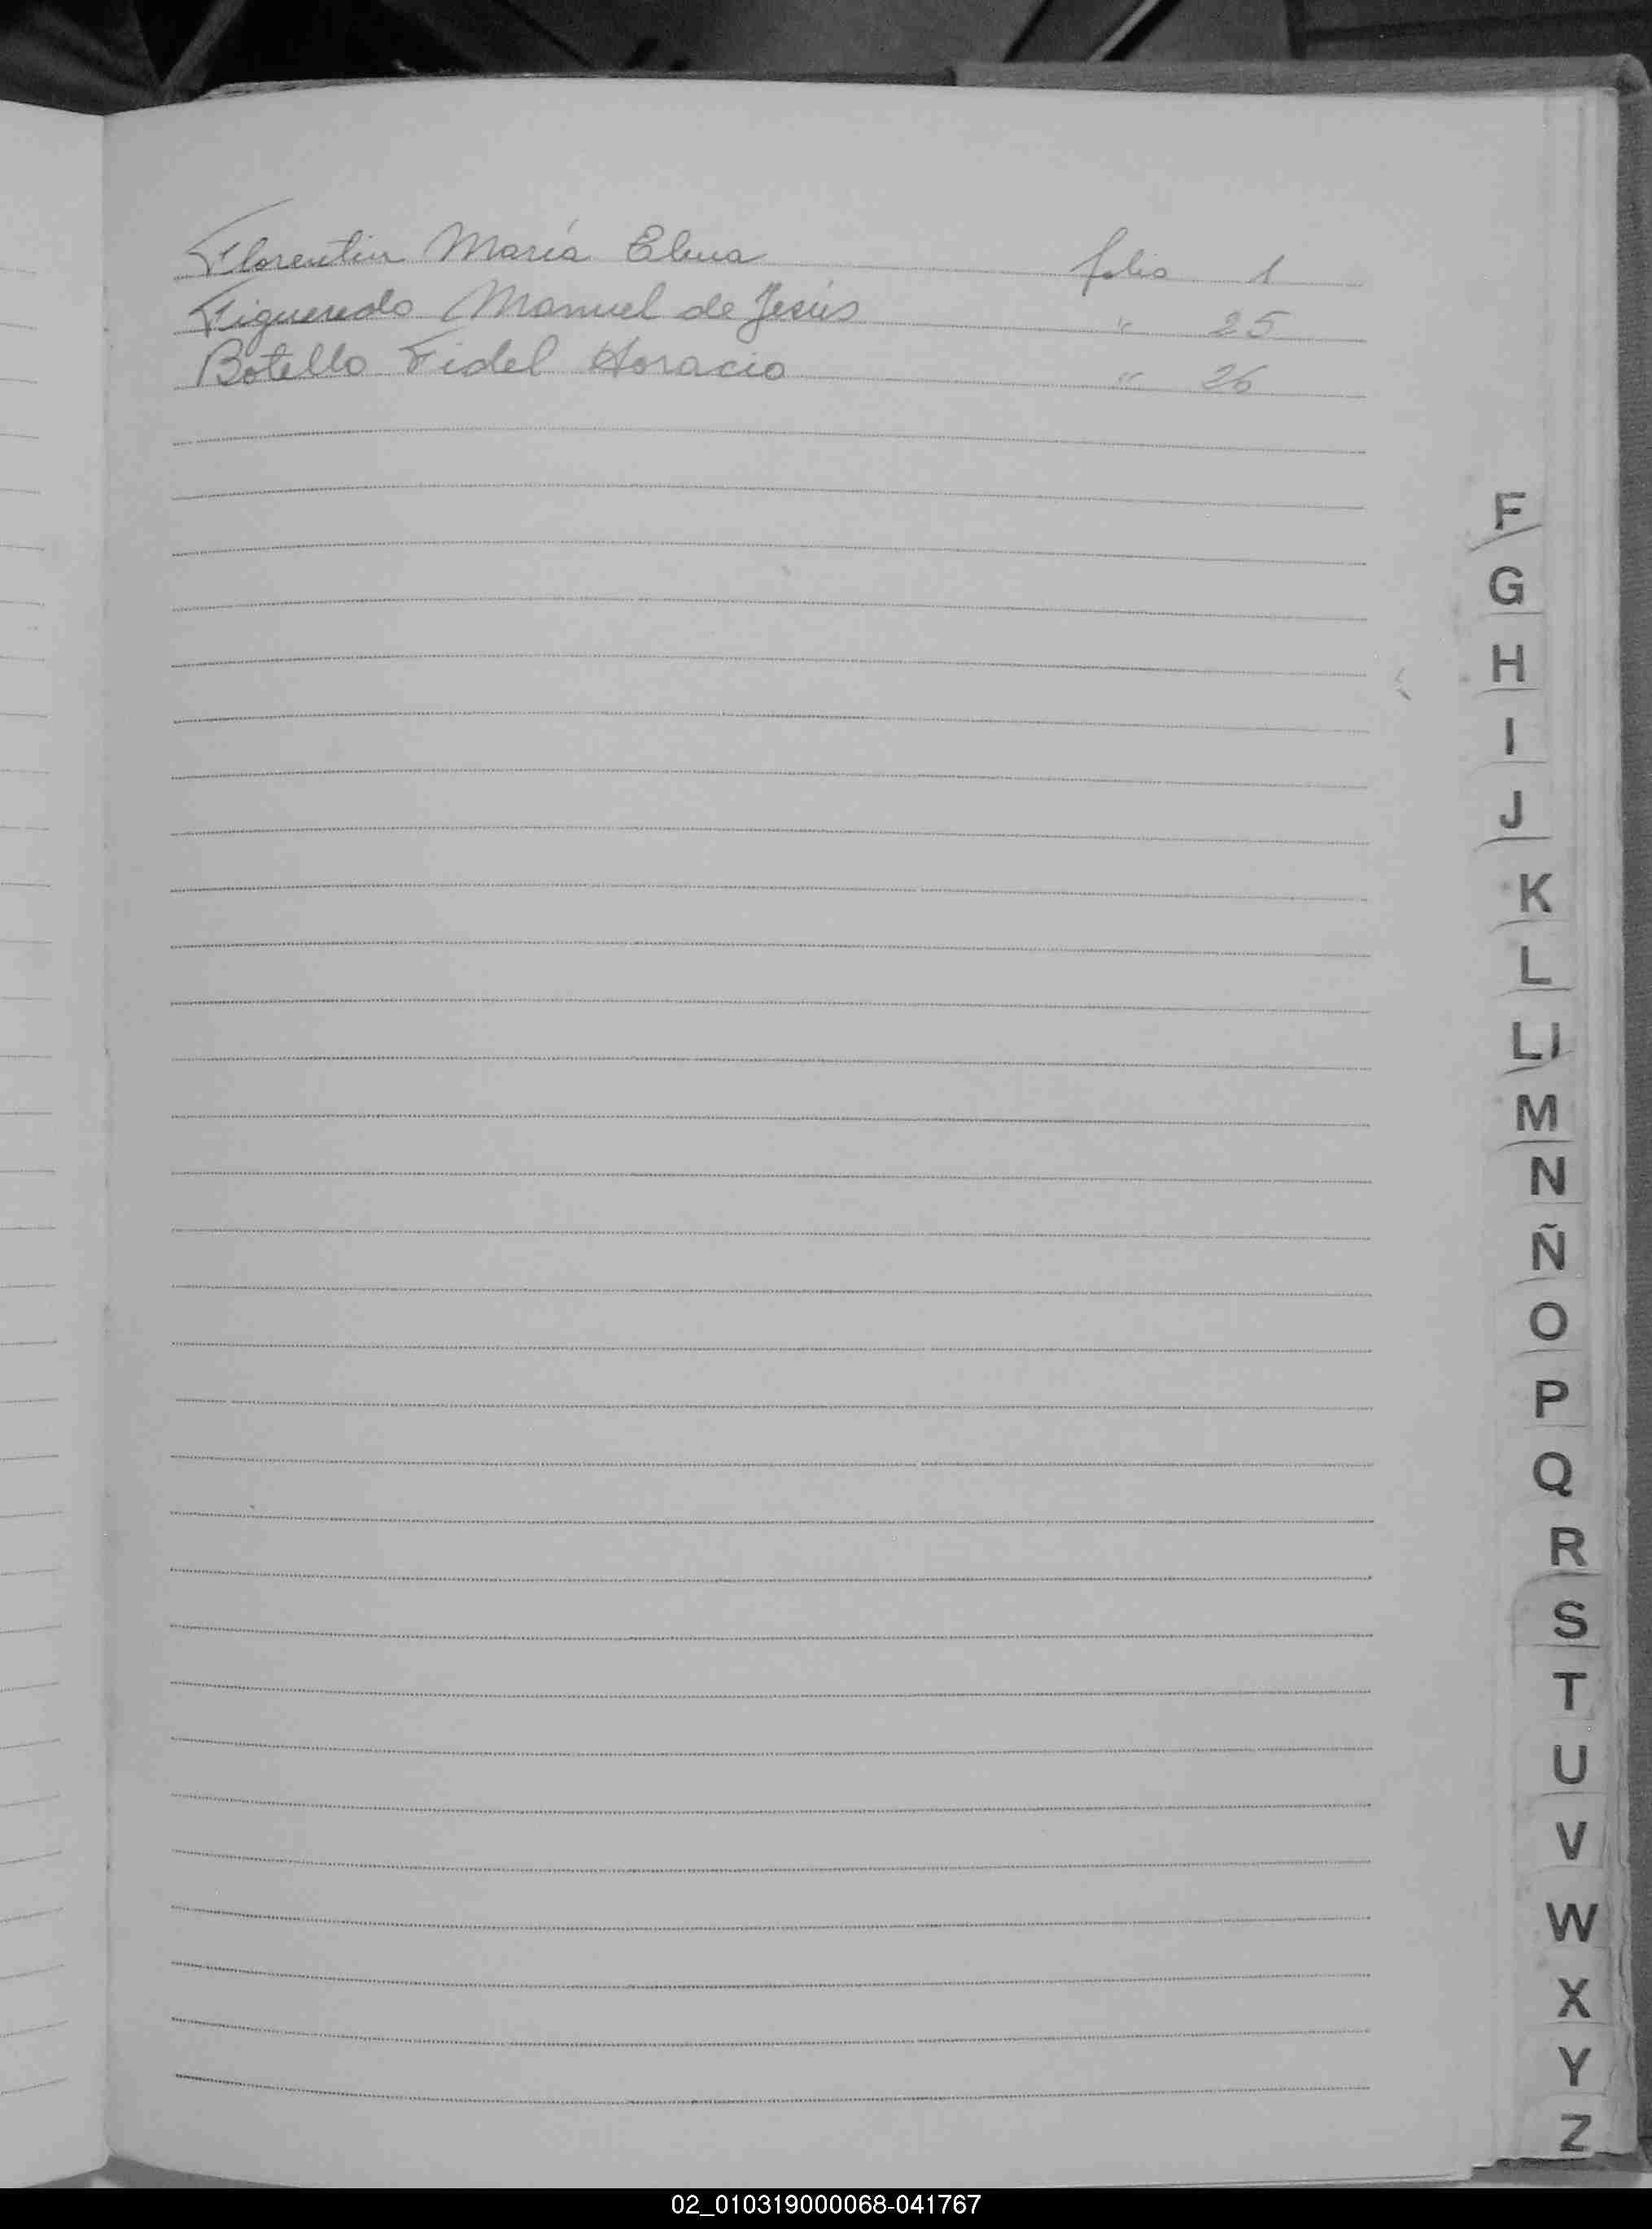 Florentin María Elena folio 1
Figueredo Manuel de Jesús " 25
Botello Fidel Horacio " 26
F
G
H
I
J
K
L
Ll
M
N
Ñ
O
P
Q
R
S
T
U
V
W
X
Y
Z
02_010319000068-041767